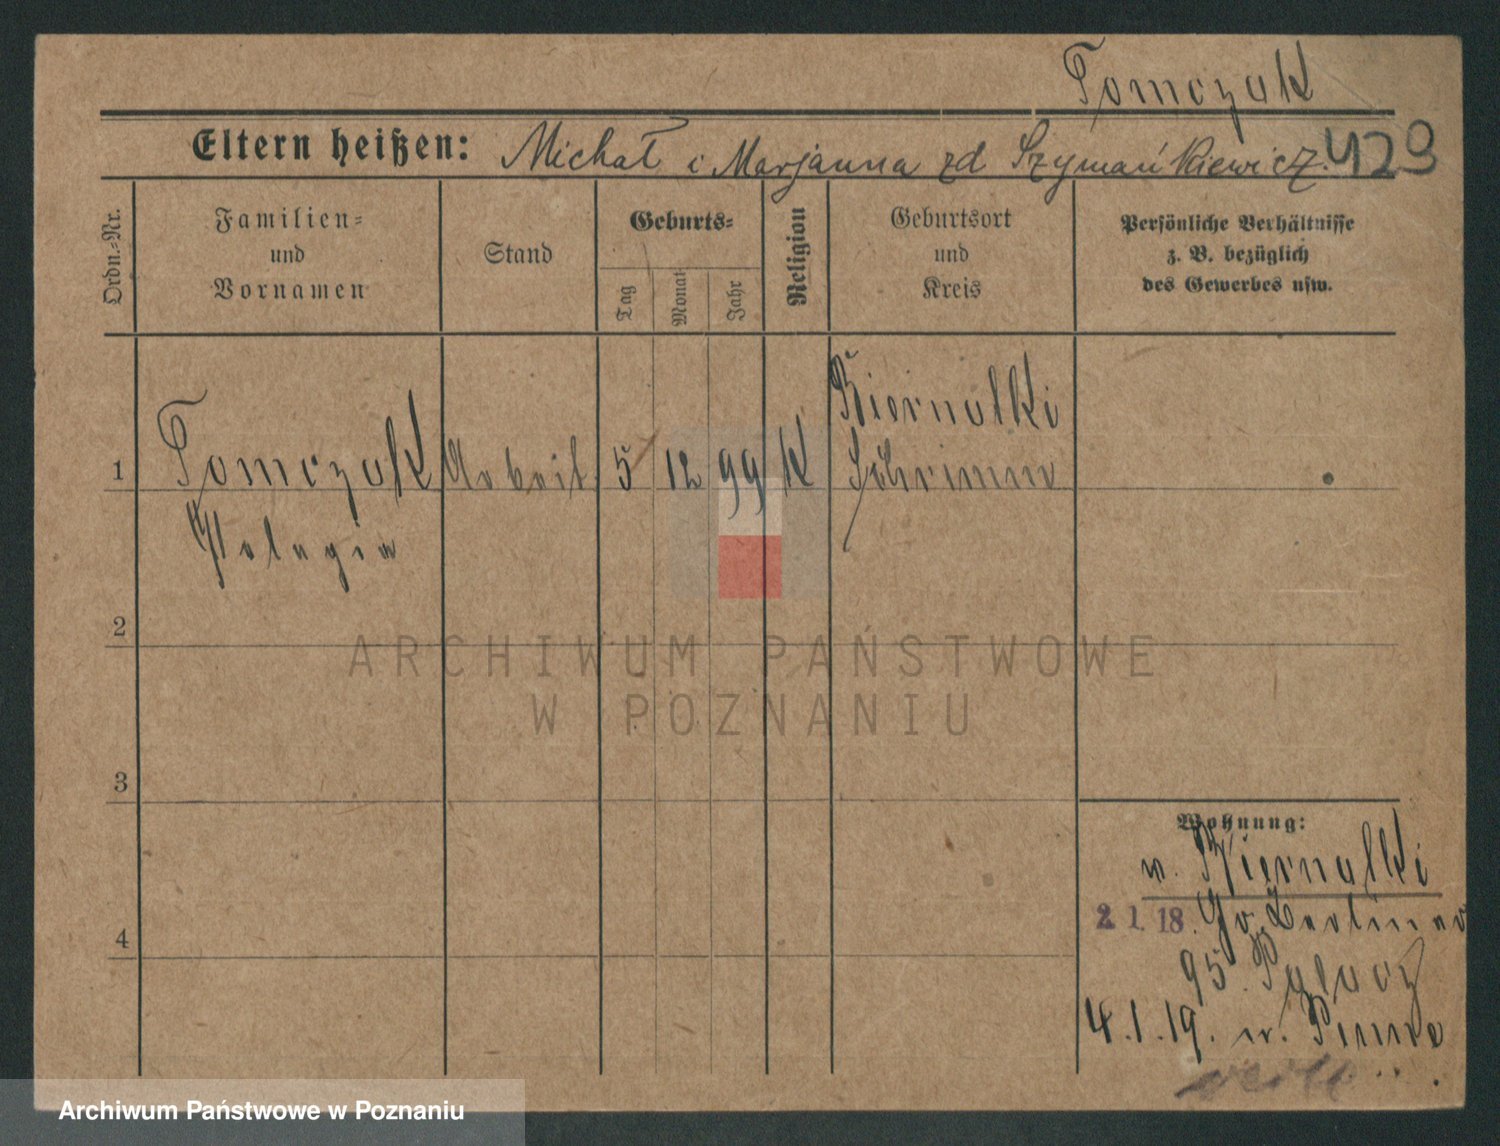 Tomczak
Eltern heißen: Michał i Marjanna zd Szymańkiewicz. 429
Ordn.-Nr.
Familien-
und
Vornamen
Stand
Geburts-
Tag
Monat
Jahr
Religion
Geburtsort
und
Kreis
Persönliche Verhältnisse
z. B. bezüglich
des Gewerbes usw.
Biernatki
1 Tomczak Arbeit 5 12 99 K Schrimm
Pelagia
2
ARCHIWUM PAŃSTWOWE
W POZNANIU
3
Wohnung:
v. Biernatki
2 1. 18. Gr. Berliner
4
95.
4.1.19. n.
Archiwum Państwowe w Poznaniu